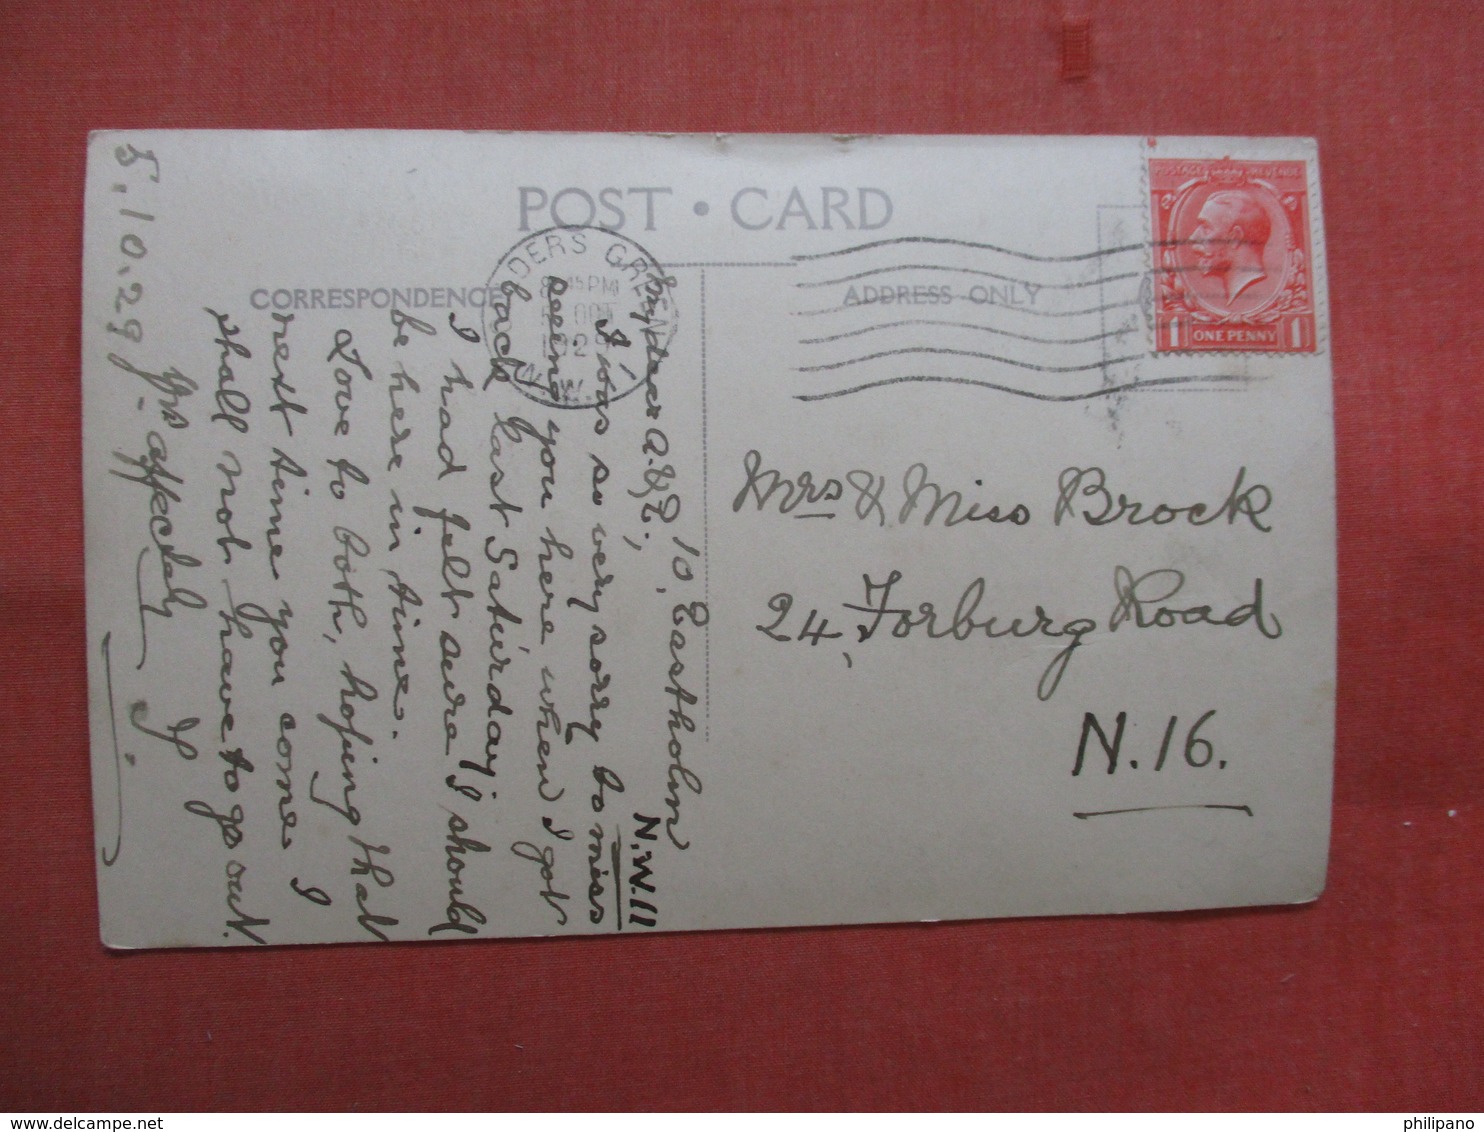 POST • CARD
CORRESPONDENCE
ADDRESS ONLY
POSTAGE REVENUE
1 ONE PENNY 1
DERS GREEN
8 45 PM
N.W.
Mrs & Miss Brock
24, Forburg Road
N.16.
10, Eastholm
N.W.11
My dear A. & E.,
I was so very sorry to miss
seeing you here when I got
back last Saturday;
I had felt sure I should
be here in time.
Love to both, hoping that
next time you come I
shall not have to go out.
Yrs affectely
5.10.29
philipano © delcampe.net